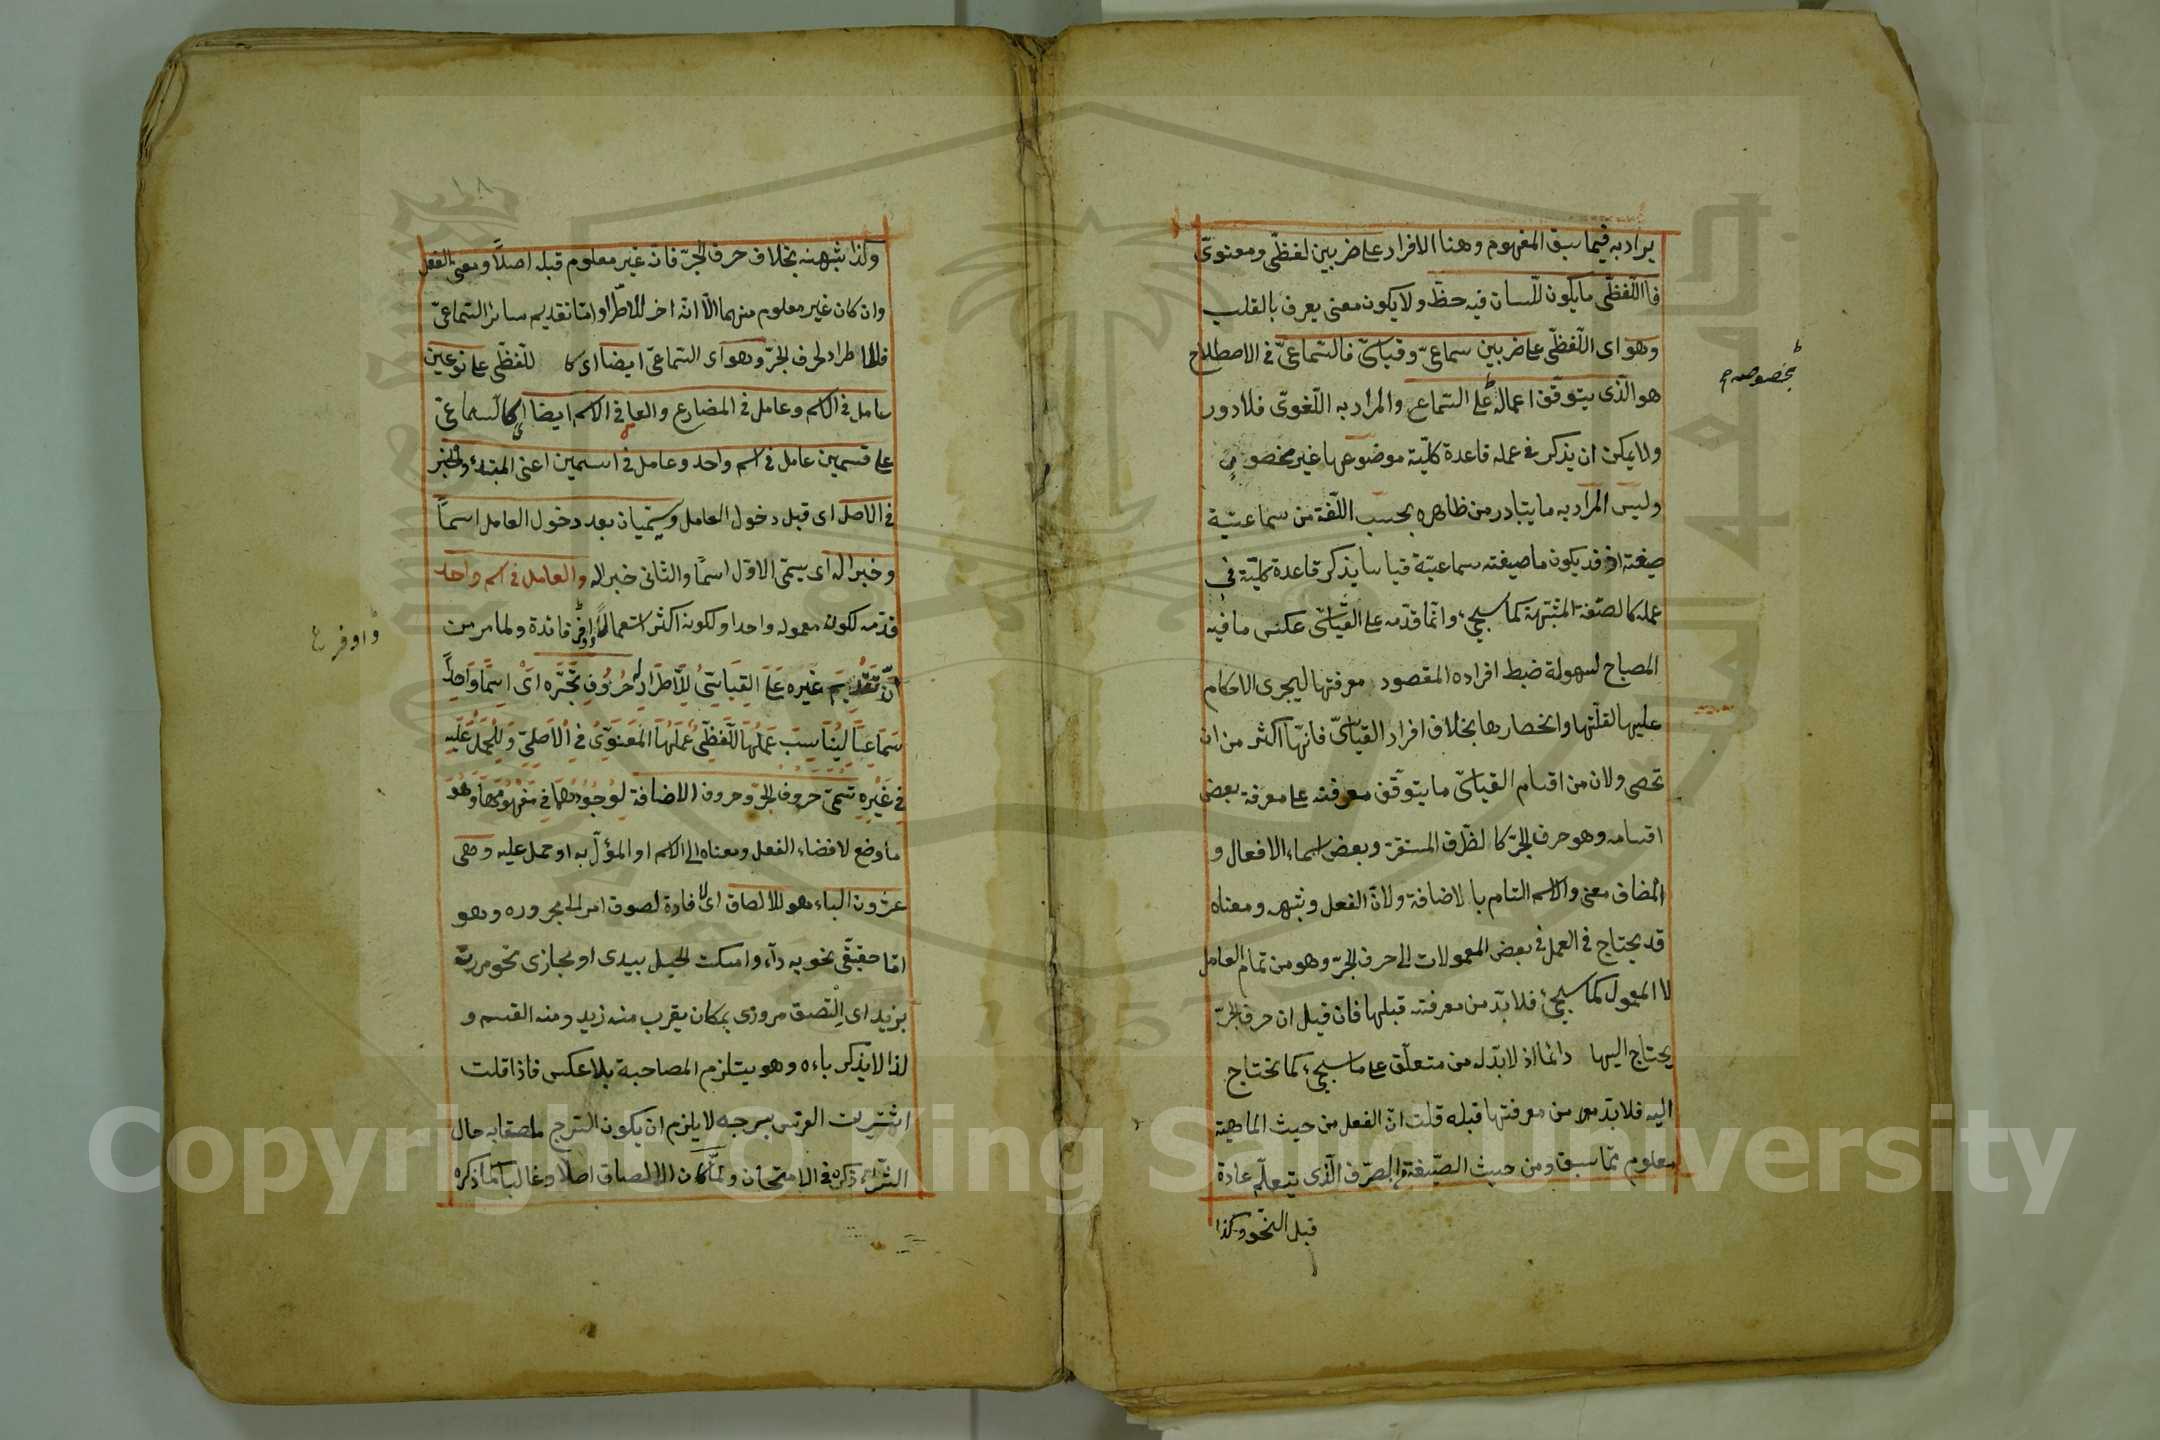 يراد به فيما سبق المفهوم وهنا الافراد على ضربين لفظّى ومعنوىّ
فاللّفظّى ما يكون للّسان فيه حظّ ولا يكون معنى يعرف بالقلب
وهو اى اللّفظّى على ضربين سماعىّ وقياسىّ فالسّماعىّ فى الاصطلاح
هو الّذى يتوقّف اعماله على السّماع والمراد به اللّغوىّ فلا دور
ولا يمكن ان يذكر فى عمله قاعدة كليّة موضوعها غير محصور
بخصوصه
وليس المراد به ما يتبادر من ظاهره بحسب اللّغة من سماعيّة
صيغته اذ قد يكون ما صيغته سماعيّة قياسا يذكر قاعدة كليّة فى
عمله كالصّفة المشبّهة كما سيجئ وانّما قدّمه على القياسىّ عكس ما فيه
المصباح لسهولة ضبط افراده المقصود معرفتها ليجرى الاحكام
عليها لقلّتها وانحصارها بخلاف افراد القياسىّ فانّها اكثر من ان
تحصى ولان من اقسام القياسىّ ما يتوقّف معرفته على معرفة بعض
اقسامه وهو حرف الجرّ كالظّرف المستقرّ وبعض اسماء الافعال و
المضاف معنى والاسم التام بالاضافة ولانّ الفعل وشبهه ومعناه
قد يحتاج فى العمل فى بعض المعمولات الى حرف الجرّ وهو من تمام العامل
لا المعمول كما سيجئ فلا بدّ من معرفته قبلها فان قيل ان حرف الجرّ
يحتاج اليها دائما اذ لا بدّ له من متعلّق على ما سيجئ كما تحتاج
اليه فلا بدّ من معرفتها قبله قلت انّ الفعل من حيث الماهية
معلوم ممّا سبق ومن حيث الصّيغة فى الصّرف الّذى يتعلّم عادة
قبل النّحو وكذا
١٨
وكذا شبهه بخلاف حرف الجرّ فانّه غير معلوم قبله اصلاً ومعنى الفعل
وان كان غير معلوم منهما الّا انّه اخر للاطّراد وامّا تقديم سائر السّماعىّ
فللاطراد لحرف الجرّ وهو اى السّماعىّ ايضا اى كاللّفظّى على نوعين
عامل فى الاسم وعامل فى المضارع والعامل فى الاسم ايضا اى كالسماعىّ
على قسمين عامل فى اسم واحد وعامل فى اسمين اعنى المبتدء والخبر
فى الاصل اى قبل دخول العامل ويسمّيان بعد دخول العامل اسماً
وخبرا له اى يسمّى الاوّل اسمًا والثانى خبرا له والعامل فى اسم واحد
قدّمه لكون معموله واحدا ولكونه اكثر استعمالاً واوفر فائدة ولما مر من
واوفر
انّ تقديم غيره على القياسىّ للاطّراد لحروف تجرّه اى اسمًا واحداً
سماعيّا ليناسب عملها اللّفظّى عملها المعنوىّ فى الاصلىّ وللحمل عليه
فى غيره تسمّى حروف الجرّ وحروف الاضافة لوجودهما فى مفهومها وهو
ما وضع لافضاء الفعل ومعناه الى الاسم او المؤوّل به او حمل عليه وهى
عشرون الباء وهو للالصاق اى لافادة لصوق امر الى مجروره وهو
امّا حقيقّى نحو به داء وامسكت الحبل بيدى او مجازى نحو مررت
بزيد اى التصق مرورى بمكان يقرب منه زيد ومنه القسم و
لذا لا يذكر باءه وهو يستلزم المصاحبة بلا عكس فاذا قلت
اشتريت الفرس بسرجه لا يلزم ان يكون السّرج ملصقا به حال
الشّراء ذكره فى الامتحان ولمّا كان الالصاق اصلا وغالبا كما ذكره
Copyright © King Saud University
1957